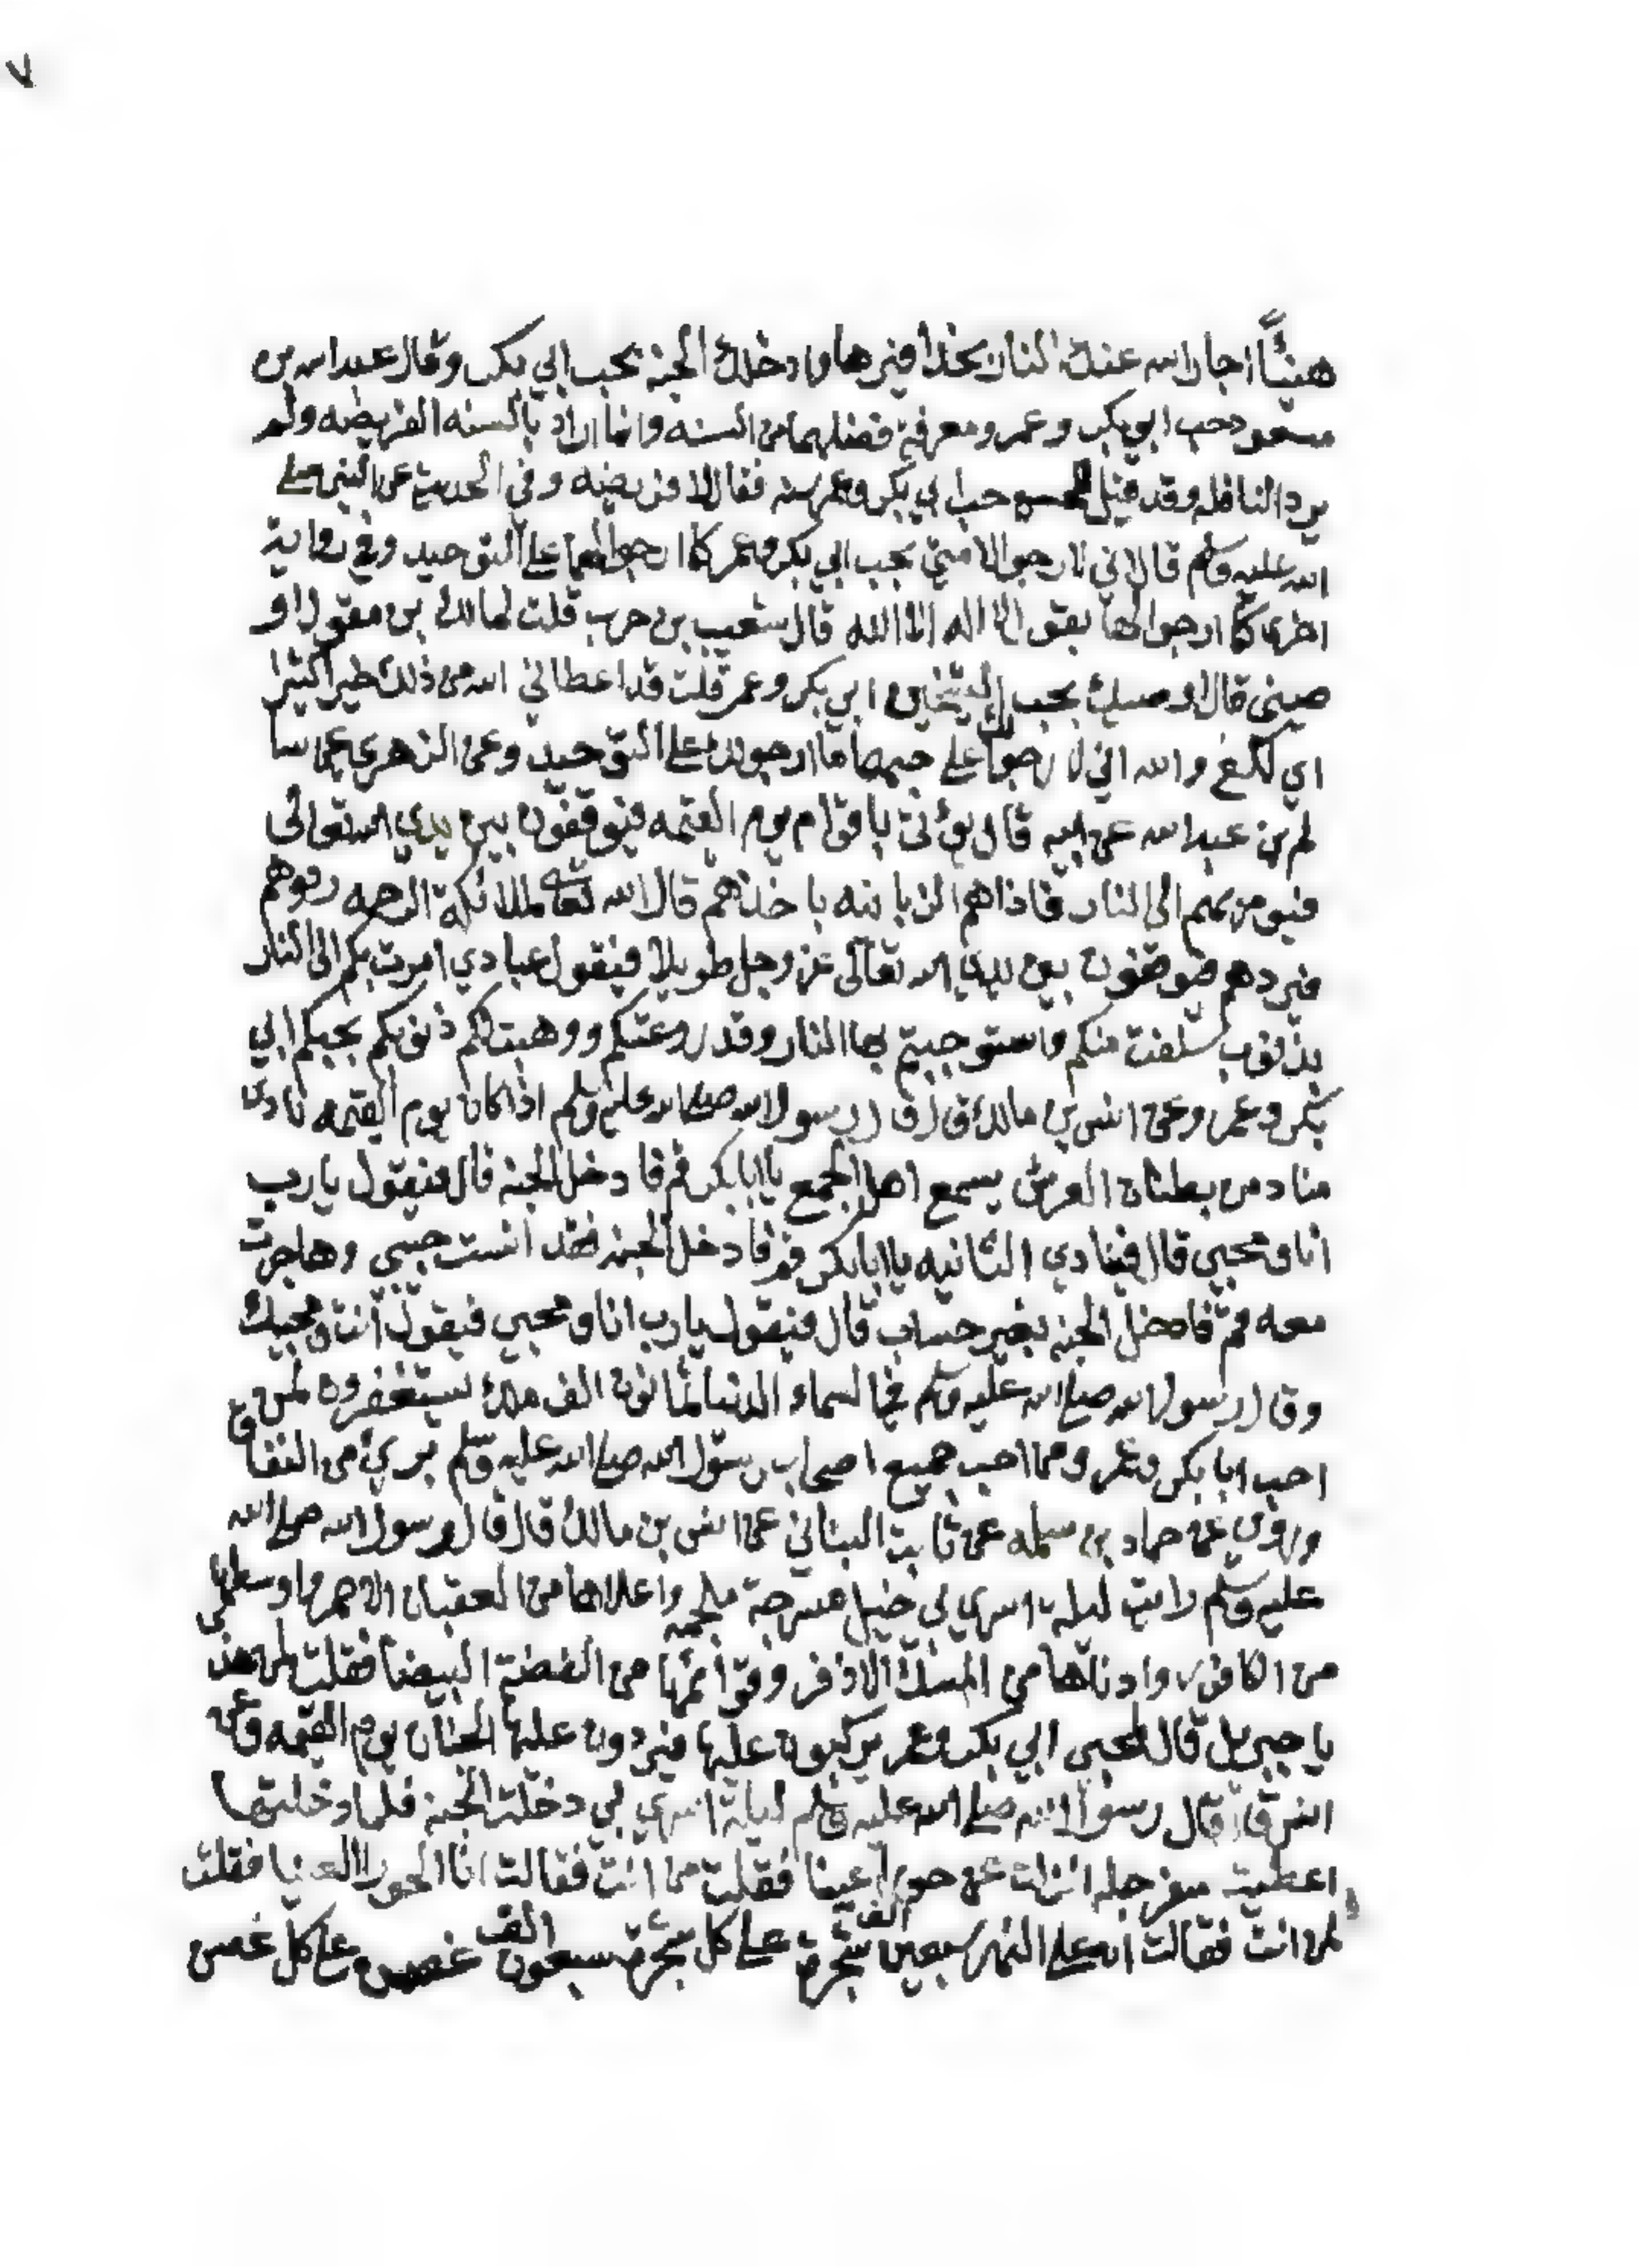 ٧
هنيئًا اجار الله عنك النار بحذافيرها وادخلك الجنة بحب ابي بكر وقال عبد الله بن
مسعود حب ابي بكر وعمر ومعرفة فضلهما من السنه وانما اراد بالسنه الفريضه ولم
يرد النافله وقد قيل للحسن حب ابي بكر وعمر سنه فقال لا فريضه وفي الحديث عن النبي صلى
الله عليه وسلم قال اني لارجوا لامتي بحب ابي بكر وعمر كما ارجوا لهما على التوحيد وفي رواية
اخرى كما ارجوا لها بقول لا اله الا الله قال شعيب بن حرب قلت لمالك بن مغول او
صيني قال اوصيك بحب الشيخين ابي بكر وعمر قلت قد اعطاني الله من ذلك خيرا كثيرا
اي لكع والله اني لارجوا لك على حبهما ما ارجو لك على التوحيد وعن الزهري عن سا
لم بن عبد الله عن ابيه قال يؤتى باقوام يوم القيمه فيوقفون بين يدي الله تعالى
فيومر بهم الى النار فاذا هم الزبانيه باخذهم قال الله تعالى لملائكة الرحمه ردوهم
فيردهم فيوقفون بين يدي الله تعالى عز وجل طويلا فيقول عبادي امرت بكم الى النار
بذنوب سلفت منكم واستوجبتم بها النار وقد روعتكم ووهبت لكم ذنوبكم بحبكم ابي
بكر وعمر وعن انس بن مالك قال قال رسول الله صلى الله عليه وسلم اذا كان يوم القيمه نادى
مناد من بطنان العرش يسمع اهل الجمع يا ابا بكر قم فادخل الجنه قال فيقول يا رب
انا ومحبي قال فينادي الثانيه يا ابا بكر قم فادخل الجنه فقد انست حبيبي وهاجرت
معه قم فادخل الجنه بغير حساب قال فيقول يا رب انا ومحبي فيقول انت ومحبيك
وقال رسول الله صلى الله عليه وسلم في السماء الدنيا ثمانون الف ملك يستغفرون لمن
احب ابا بكر وعمر ومما احب جميع اصحاب رسول الله صلى الله عليه وسلم بريء من النفاق
وروي عن حماد بن سلمه عن ثابت البناني عن انس بن مالك قال قال رسول الله صلى الله
عليه وسلم رايت ليلة اسري بي خيل مسرجة ملجمه واعلاها من العقيان الاحمر واوسطها
من الكافور وادناها من المسك الاذفر وقوائمها من الفضة البيضا فقلت لمن هذ
يا جبريل قال لمحبي ابي بكر وعمر يركبون عليها فيردون عليها الجنان يوم القيمه وعن
انس قال قال رسول الله صلى الله عليه وسلم ليلة اسري بي دخلت الجنه فلما دخلتها
اعطيت سفرجله انزلت عن حورا عينا فقلت من انت فقالت انا الحورا العينا فقلت
لمن انت فقالت انه على النهر سبعين الف شجرة على كل شجرة سبعون الف غصن وعلى كل غصن